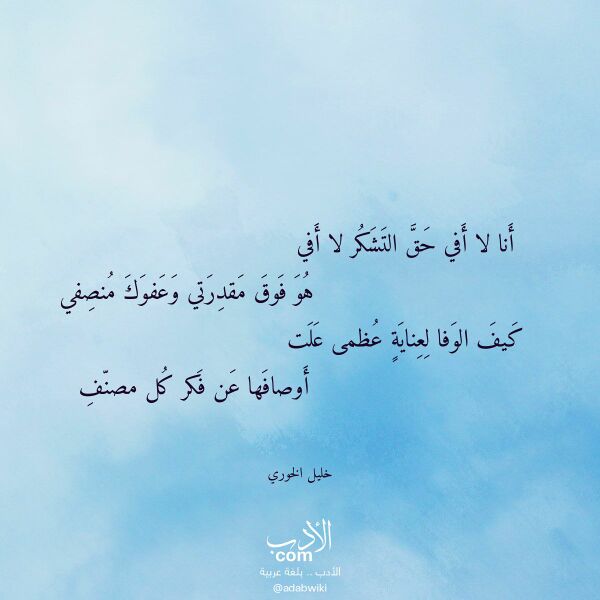 أَنا لا أَفي حَقَّ التَشَكُر لا أَفي
هُوَ فَوقَ مَقدِرَتي وَعَفوَكَ مُنصِفي
كَيفَ الوَفا لِعِنايَةٍ عُظمى عَلَت
أَوصافَها عَن فَكر كُل مصنّفِ
خليل الخوري
الأدب
com
الأدب .. بلغة عربية
@adabwiki